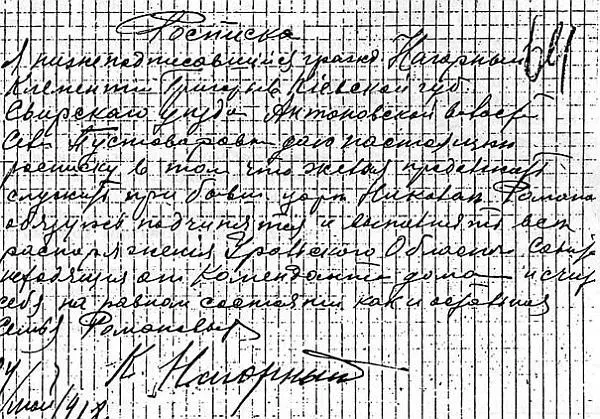 Росписка
Я нижеподписовшийся гражд Нагорный
Клементи Григорьев Кіевской губ.
Свирскаго уезда Антоновской
Села Пустоваровка даю настоящую
росписку в том что желая продолжать
служить при бовш царе Николаи Романо
обязуюсь подчинятся и выполнять все
распоряженія Уральского Област
исходящия от Коменданта дома и счит
себя на равном состоянии как и остальная
семья Романовых
К Нагорный